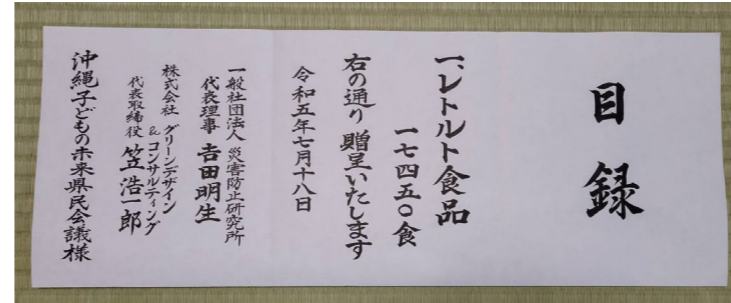 目録
一、レトルト食品
一七四五〇食
右の通り 贈呈いたします
令和五年七月十八日
一般社団法人 災害防止研究所
代表理事 吉田明生
株式会社 グリーンデザイン
& コンサルティング
代表取締役 笠浩一郎
沖縄子どもの未来県民会議様